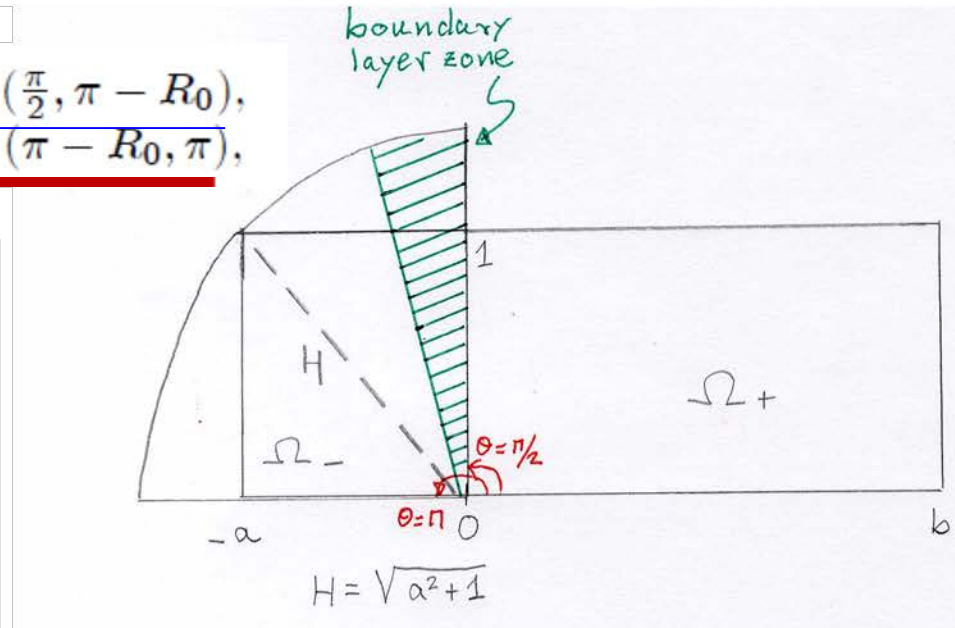 boundary
layer zone
(π/2, π − R₀),
(π − R₀, π),
1
H
Ω₊
Ω₋
θ=π/2
θ=π
-a
0
b
H = √(a²+1)